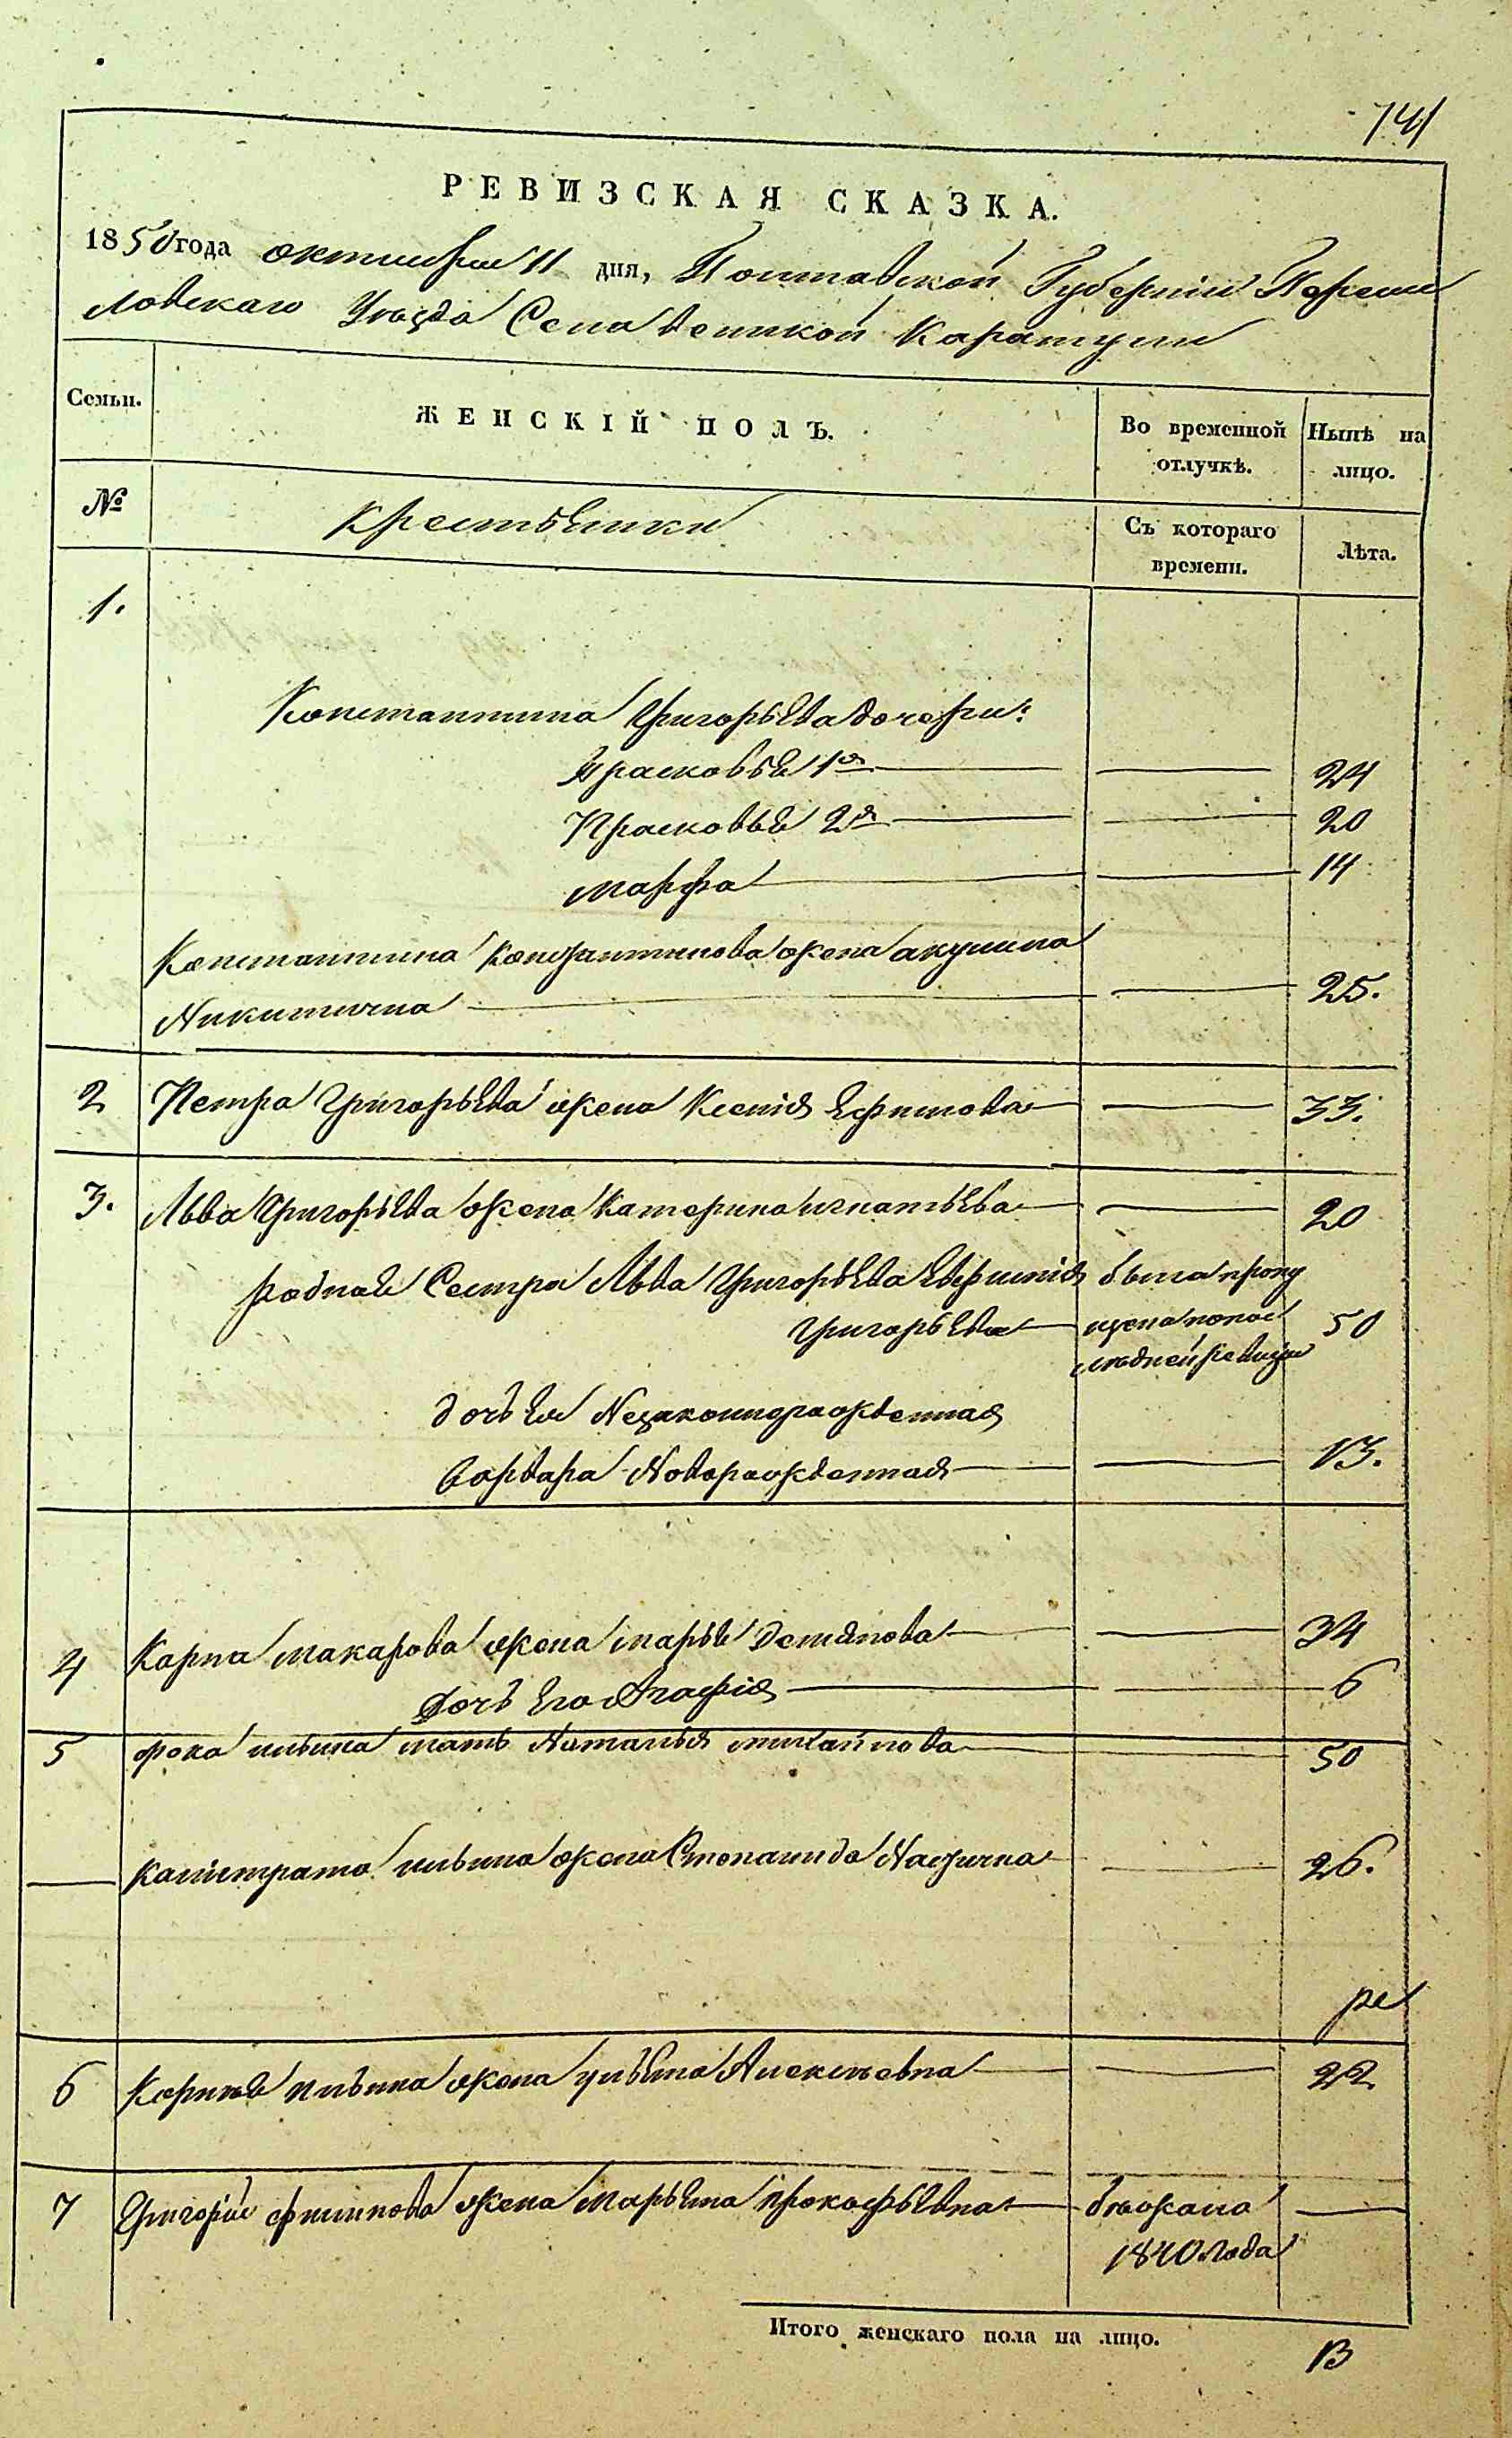 741
РЕВИЗСКАЯ СКАЗКА.
1850 года октября 11 дня, Полтавской Губернiи Переяс
ловскаго Уѣзда Села великой Каратули
Семьи. ЖЕНСКIЙ ПОЛЪ. Во временной отлучкѣ. Нынѣ на лицо.
№ крестьянки Съ котораго времени. Лѣта.
1.
Константина Григорьева дочери:
Прасковья 1я 24
Прасковья 2я 20
марфа 14
Константина Константинова жена акулина
Никитична 25.
2 Петра Григорьева жена Ксенiя Ефимова 33.
3. Льва Григорьева жена Катерина игнатьева 20
родная Сестра Льва Григорьева Евфимiя была пропу
Григорьева щена попос 50
лѣдней ревизiи
дочь Ея Незаконнорожденная
варвара Новорожденная 13.
4 Карпа макарова жена марья Демянова 34
Дочь Его Агафiя 6
5 фока ильина мать Наталья михайлова 50
калистрата ильина жена Степанида 26.
ре
6 Корнѣя ильина жена ульяна Алексѣевна 22
7 Григорiя филипова жена марьяна прокофьевна бѣжала
1840 года
Итого женскаго пола на лицо. 13